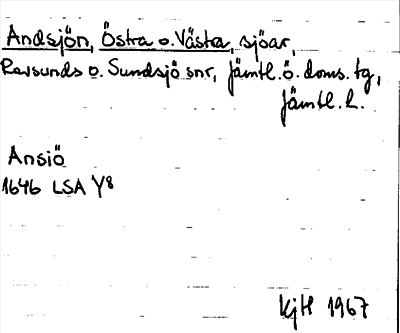 Andsjön, Östra o. Västra, sjöar,
Revsunds o. Sundsjö snr, Jämtl. ö. doms. tg,
Jämtl. l.
Ansiö
1646 LSA Y8
KjH 1967